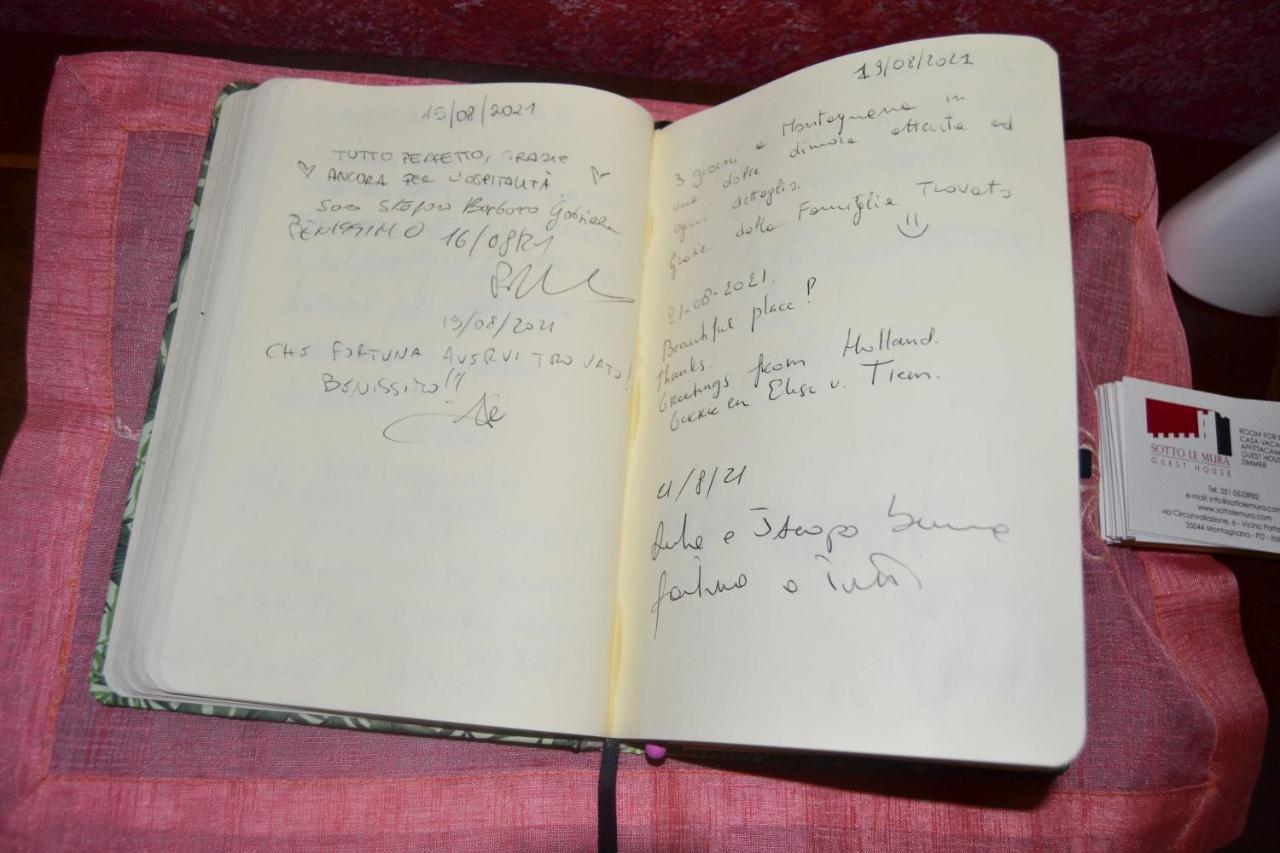 15/08/2021
TUTTO PERFETTO, GRAZIE
ANCORA PER L'OSPITALITÀ
Stefano Barbara Gabriele
BENISSIMO 16/08/21
19/08/2021
CHE FORTUNA AVERVI TROVATO!
BENISSIMO!!
19/08/2021
3 giorni a Montagnana in
una dolce dimora attenta ad
ogni dettaglio.
Grazie dalla Famiglia Trovato
21-08-2021.
Beautiful place!
thanks.
Greetings from Holland.
en Elise v.
/8/21
e buona
fortuna a tutti
SOTTO LE MURA
GUEST HOUSE
ROOM FOR
CASA VACA
AFFITTACAM
GUEST HOUS
ZIMMER
Tel. 351 0533982
e-mail: info@sottolemura.com
www.sottolemura.com
via Circonvallazione, 6 - Vicino Por
35044 Montagnana - PD - Ital